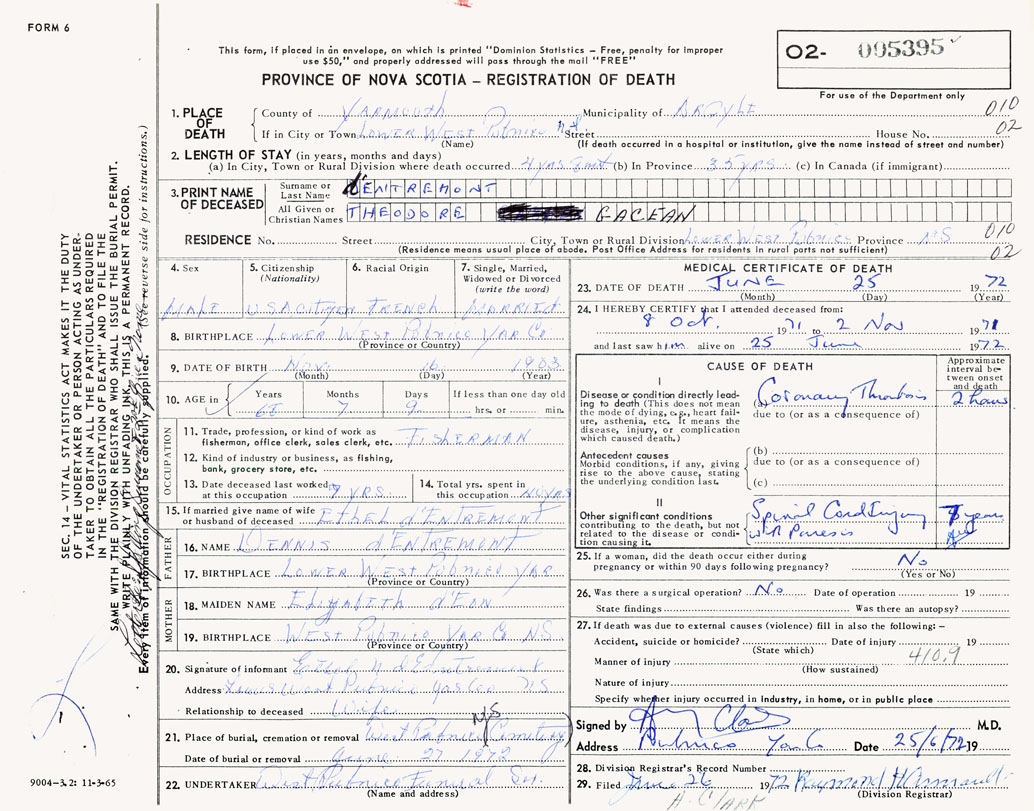 FORM 6
This form, if placed in an envelope, on which is printed "Dominion Statistics – Free, penalty for improper
use $50," and properly addressed will pass through the mail "FREE"
PROVINCE OF NOVA SCOTIA – REGISTRATION OF DEATH
O2- 005395
For use of the Department only
1. PLACE OF DEATH
County of YARMOUTH Municipality of ARGYLE
010
If in City or Town LOWER WEST Pubnico N.S. Street House No.
02
(Name) (If death occurred in a hospital or institution, give the name instead of street and number)
2. LENGTH OF STAY (in years, months and days)
(a) In City, Town or Rural Division where death occurred 4 yrs 8 mt (b) In Province 35 yrs. (c) In Canada (if immigrant)
3. PRINT NAME OF DECEASED
Surname or Last Name d'ENTREMONT
All Given or Christian Names THEODORE GACEAN
RESIDENCE No. Street City, Town or Rural Division Lower West Pubnico Province N.S
010
02
(Residence means usual place of abode. Post Office Address for residents in rural parts not sufficient)
4. Sex
MALE
5. Citizenship
(Nationality)
USA Citizen
6. Racial Origin
French
7. Single, Married,
Widowed or Divorced
(write the word)
MARRIED
8. BIRTHPLACE Lower West Pubnico Yar Co
(Province or Country)
9. DATE OF BIRTH Nov. 16 1903
(Month) (Day) (Year)
10. AGE in
Years Months Days If less than one day old
68 7 9 hrs. or min.
OCCUPATION
11. Trade, profession, or kind of work as
fisherman, office clerk, sales clerk, etc. FISHERMAN
12. Kind of industry or business, as fishing,
bank, grocery store, etc.
13. Date deceased last worked
at this occupation 7 YRS.
14. Total yrs. spent in
this occupation 40 yrs
15. If married give name of wife
or husband of deceased ETHEL d'ENTREMONT
FATHER
16. NAME DENNIS d'ENTREMONT
17. BIRTHPLACE LOWER WEST Pubnico YAR
(Province or Country)
MOTHER
18. MAIDEN NAME Elizabeth d'Eon
19. BIRTHPLACE WEST Pubnico YAR Co NS
(Province or Country)
20. Signature of informant Ethel N d'Entremont
Address Lower West Pubnico Yar Co NS
Relationship to deceased Wife
N/S
21. Place of burial, cremation or removal West Pubnico Cemetery
Date of burial or removal June 27 1972
22. UNDERTAKER West Pubnico Funeral
(Name and address)
MEDICAL CERTIFICATE OF DEATH
23. DATE OF DEATH JUNE 25 1972
(Month) (Day) (Year)
24. I HEREBY CERTIFY that I attended deceased from:
8 Oct. 1971 to 2 Nov 1971
and last saw him alive on 25 June 1972
CAUSE OF DEATH
Approximate interval between onset and death
I
Disease or condition directly leading to death (This does not mean
the mode of dying, e.g., heart failure, asthenia, etc. It means the
disease, injury, or complication
which caused death.)
(a) Coronary Thrombosis 2 hours
due to (or as a consequence of)
Antecedent causes
Morbid conditions, if any, giving
rise to the above cause, stating
the underlying condition last.
(b)
due to (or as a consequence of)
(c)
II
Other significant conditions
contributing to the death, but not
related to the disease or condition causing it.
Spinal Cord Injury years
Paresis
25. If a woman, did the death occur either during
pregnancy or within 90 days following pregnancy? No
(Yes or No)
26. Was there a surgical operation? No Date of operation 19
State findings Was there an autopsy?
27. If death was due to external causes (violence) fill in also the following: –
Accident, suicide or homicide? Date of injury 19
(State which)
Manner of injury 410.9
(How sustained)
Nature of injury
Specify whether injury occurred in Industry, in home, or in public place
Signed by M.D.
Address Pubnico Yar Co Date 25/6/72 19
28. Division Registrar's Record Number
29. Filed June 26 1972 Raymond
(Division Registrar)
A. CLARK
SEC. 14 – VITAL STATISTICS ACT MAKES IT THE DUTY
OF THE UNDERTAKER OR PERSON ACTING AS UNDER-
TAKER TO OBTAIN ALL THE PARTICULARS REQUIRED
IN THE "REGISTRATION OF DEATH" AND TO FILE THE
SAME WITH THE DIVISION REGISTRAR WHO SHALL ISSUE THE BURIAL PERMIT.
WRITE PLAINLY WITH UNFADING INK. THIS IS A PERMANENT RECORD.
Every item of information should be carefully supplied. (See reverse side for instructions.)
9004-3.2: 11-3-65